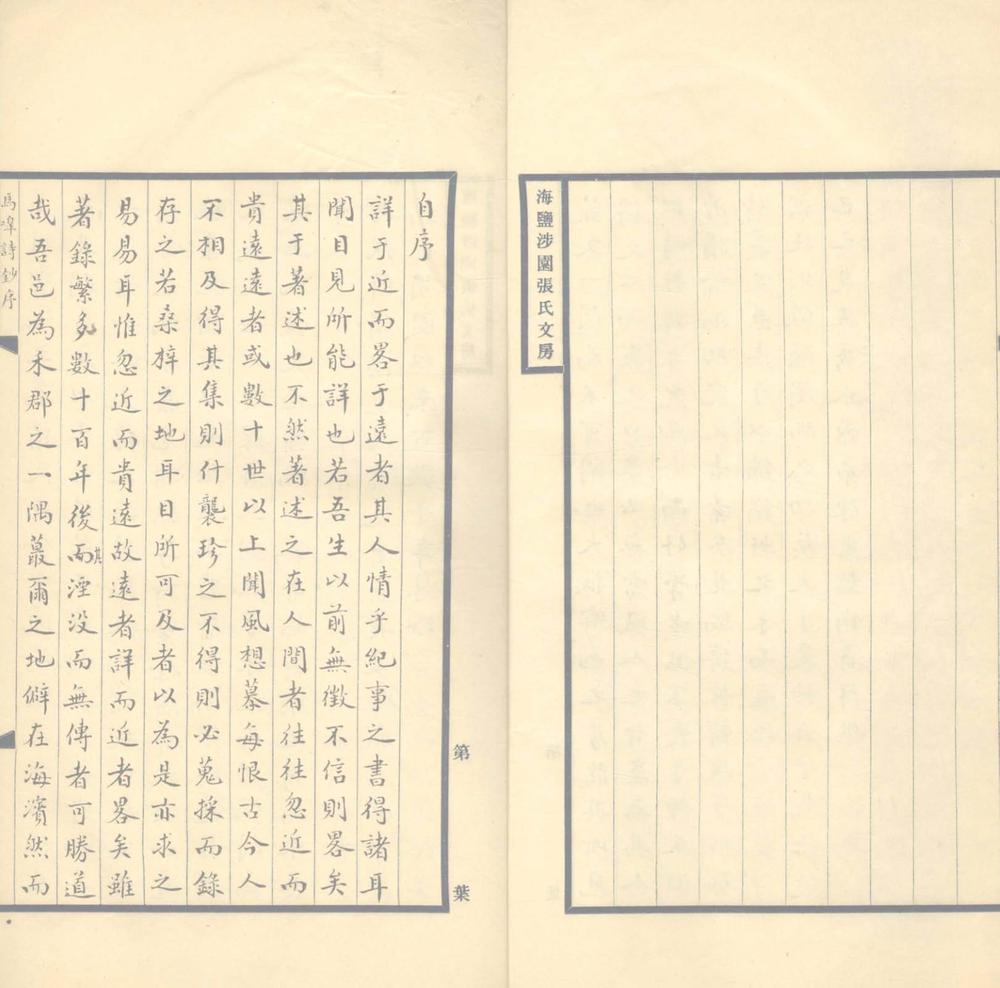 海鹽涉園張氏文房
自序
詳于近而畧于遠者其人情乎紀事之書得諸耳
聞目見所能詳也若吾生以前無徵不信則畧矣
其于著述也不然著述之在人間者往往忽近而
貴遠遠者或數十世以上聞風想慕每恨古今人
不相及得其集則什襲珍之不得則必蒐採而錄
存之若桑梓之地耳目所可及者以為是亦求之
易易耳惟忽近而貴遠故遠者詳而近者畧矣雖
著錄繁多數十百年後而其湮没而無傳者可勝道
哉吾邑為禾郡之一隅蕞爾之地僻在海濱然而
馬嘷詩鈔序
第 葉